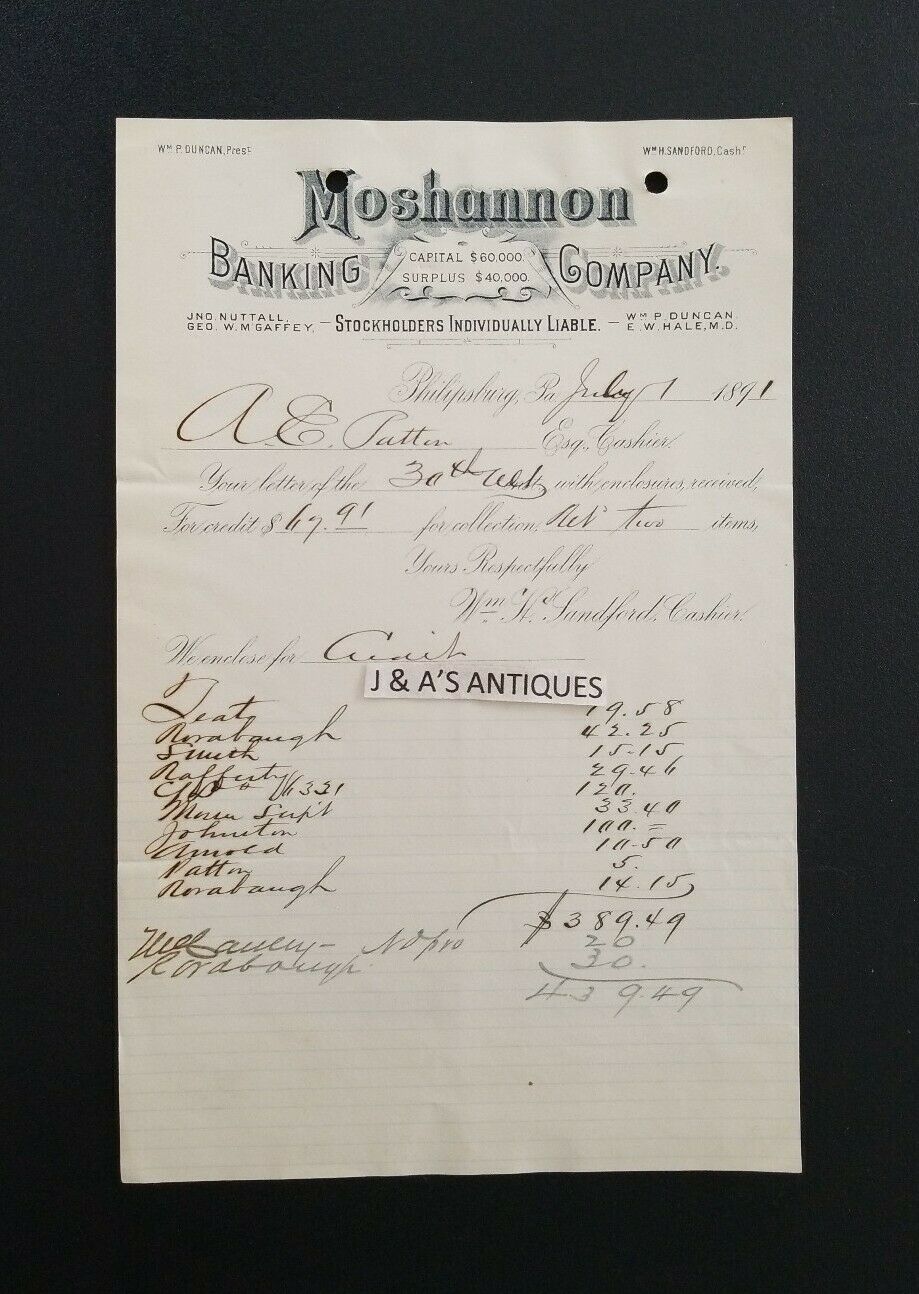 Wm P. DUNCAN, Prest.
Wm H. SANDFORD, Cashr.
Moshannon
BANKING COMPANY.
CAPITAL $60,000.
SURPLUS $40,000.
JNO. NUTTALL,
GEO. W. McGAFFEY,
— STOCKHOLDERS INDIVIDUALLY LIABLE. —
Wm P. DUNCAN
E. W. HALE, M.D.
Philipsburg, Pa July 1 1891
A E. Patton Esq. Cashier.
Your letter of the 30th with enclosures, received,
For credit $ 67.91 for collection, two items,
Yours Respectfully
Wm H. Sandford, Cashier.
We enclose for Credit
J & A'S ANTIQUES
Teats 19.58
Rorabaugh 42.25
Smith 15.15
Rafferty 29.46
6331 120.
33.40
Johnston 100.=
Arnold 10.50
Patton 5.
Rorabaugh 14.15
$389.49
No pro 20
Rorabaugh 30.
439.49